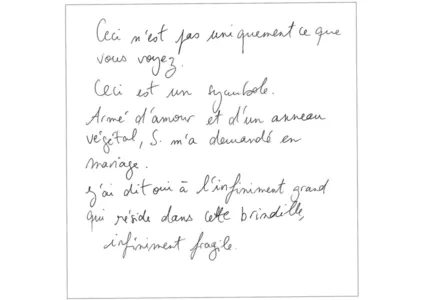 Ceci n'est pas uniquement ce que
vous voyez.
Ceci est un symbole.
Armé d'amour et d'un anneau
végétal, S. m'a demandé en
mariage.
J'ai dit oui à l'infiniment grand
qui réside dans cette brindille,
infiniment fragile.